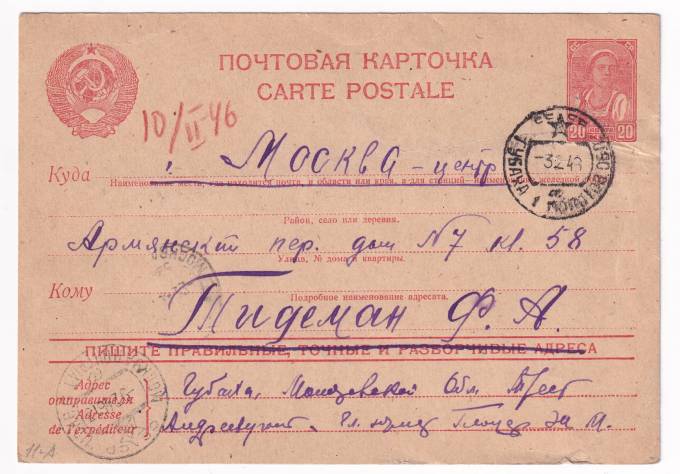 ПОЧТОВАЯ КАРТОЧКА
CARTE POSTALE
20 20
10/II-46
Куда г. Москва - центр
Наименование места, где находится почта, и области или края, а для станций-наименование железной
Район, село или деревня.
Армянский пер. дом N7 кв. 58
Улица, № дома и квартиры.
Кому
Подробное наименование адресата.
Тидеман Ф. А.
ПИШИТЕ ПРАВИЛЬНЫЕ, ТОЧНЫЕ И РАЗБОРЧИВЫЕ АДРЕСА
Адрес
отправителя
Adresse
de l'expéditeur
Губаха, Молотовской Обл. Трест
11-А